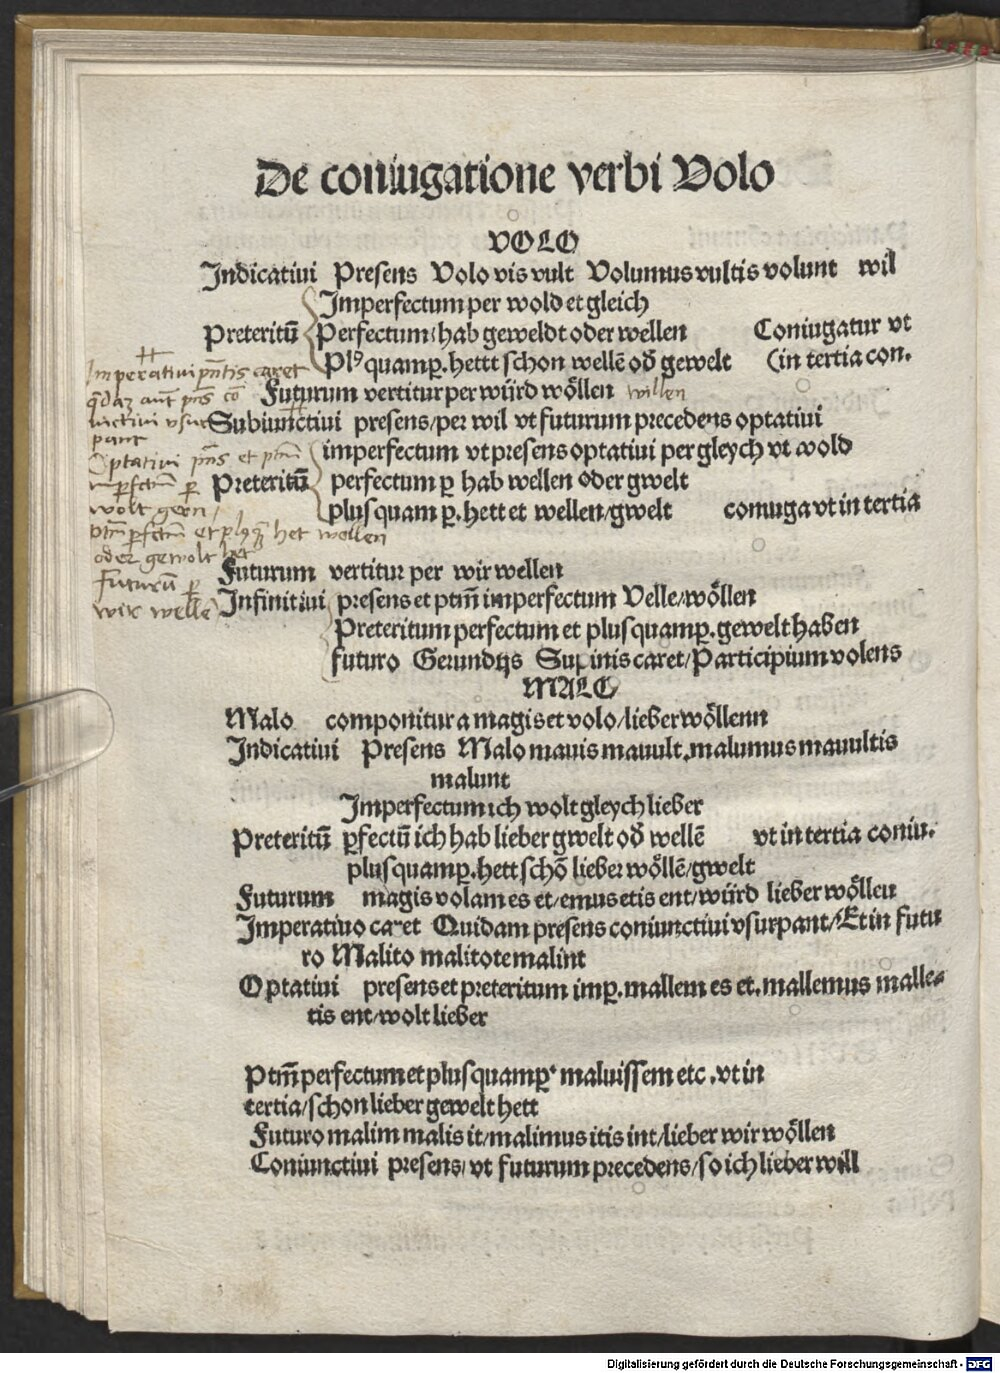 De coniugatione verbi Volo
VOLO
Indicatiui Presens Volo vis vult Volumus vultis volunt wil
Imperfectum per wold et gleich
Preteritū Perfectum hab geweldt oder wellen Coniugatur vt
Plꝰquamꝑ. hettt schon wellē od̄ gewelt (in tertia con.
Futurum vertitur per würd wöllen willen
Imperatiui pn̄tis caret
q̄daꝫ aūt pn̄s cō
iunctiui vsur
pant
Optatiui pn̄s et ptm̄
imꝑfctm̄ ꝑ
wolt gern/
ptm̄ ꝑfctm̄ et plꝰqꝫ het wellen
oder gewolt het
Futurū ꝑ
wir wellē
Subiunctiui presens/per wil vt futurum precedens optatiui
imperfectum vt presens optatiui per gleych vt wold
Preteritū perfectum ꝑ hab wellen oder gwelt
plusquam ꝑ. hett et wellen/gwelt coniuga vt in tertia
Futurum vertitur per wir wellen
Infinitiui presens et ptm̄ imperfectum Velle/wöllen
Preteritum perfectum et plusquamꝑ. gewelt haben
futuro Gerundijs Supinis caret/Participium volens
MALO
Malo componitur a magis et volo/lieber wöllenn
Indicatiui Presens Malo mauis mauult.malumus mauultis
malunt
Imperfectum ich wolt gleych lieber
Preteritū ꝑfectū ich hab lieber gwelt od̄ wellē vt in tertia coniu.
plusquamꝑ. hett schō lieber wöllē/gwelt
Futurum magis volam es et/emus etis ent/würd lieber wöllen
Imperatiuo caret Quidam presens coniunctiui vsurpant/Et in futu
ro Malito malitote malint
Optatiui presens et preteritum imp. mallem es et. mallemus malle⸗
tis ent/wolt lieber
Ptm̄ perfectum et plusquamꝑ. maluissem etc .vt in
tertia/schon lieber gewelt hett
Futuro malim malis it/malimus itis int/lieber wir wöllen
Coniunctiui presens/ vt futurum precedens/so ich lieber will
Digitalisierung gefördert durch die Deutsche Forschungsgemeinschaft - DFG